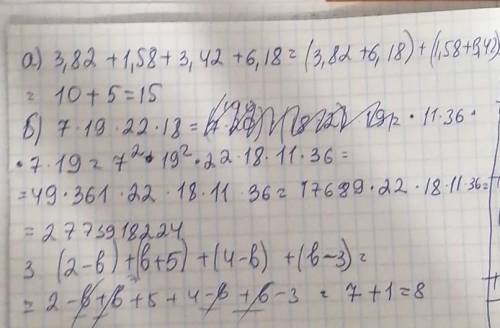 а) 3,82 + 1,58 + 3,42 + 6,18 = (3,82 + 6,18) + (1,58 + 3,42)
= 10 + 5 = 15
б) 7 · 19 · 22 · 18 = · 11 · 36 ·
· 7 · 19 = 7² · 19² · 22 · 18 · 11 · 36 =
= 49 · 361 · 22 · 18 · 11 · 36 = 17689 · 22 · 18 · 11 · 36 =
= 2773918224
3 (2 - b) + (b + 5) + (4 - b) + (b - 3) =
= 2 - b + b + 5 + 4 - b + b - 3 = 7 + 1 = 8